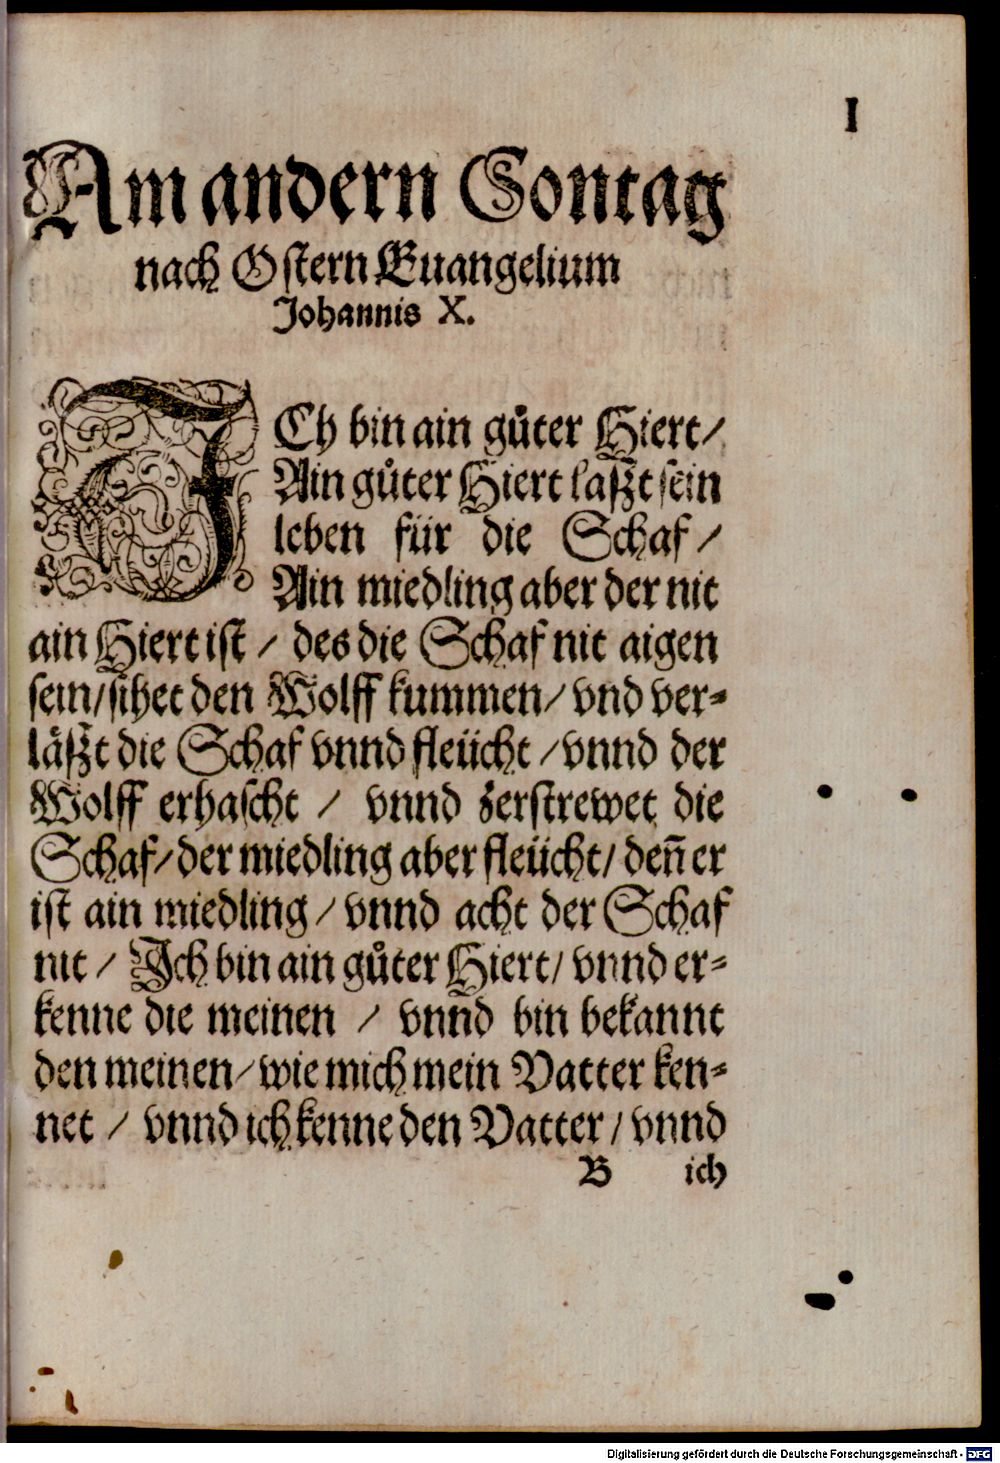 I
Am andern Sontag
nach Ostern Euangelium
Johannis X.
ICh bin ain gůter Hiert /
Ain gůter Hiert laſzt ſein
leben für die Schaf /
Ain miedling aber der nit
ain Hiert iſt / des die Schaf nit aigen
ſein / ſihet den Wolff kummen / vnd ver⸗
läſzt die Schaf vnnd fleücht / vnnd der
Wolff erhaſcht / vnnd zerſtrewet die
Schaf / der miedling aber fleücht / den̄ er
iſt ain miedling / vnnd acht der Schaf
nit / Ich bin ain gůter Hiert / vnnd er⸗
kenne die meinen / vnnd bin bekannt
den meinen / wie mich mein Vatter ken⸗
net / vnnd ich kenne den Vatter / vnnd
B ich
Digitalisierung gefördert durch die Deutsche Forschungsgemeinschaft - DFG